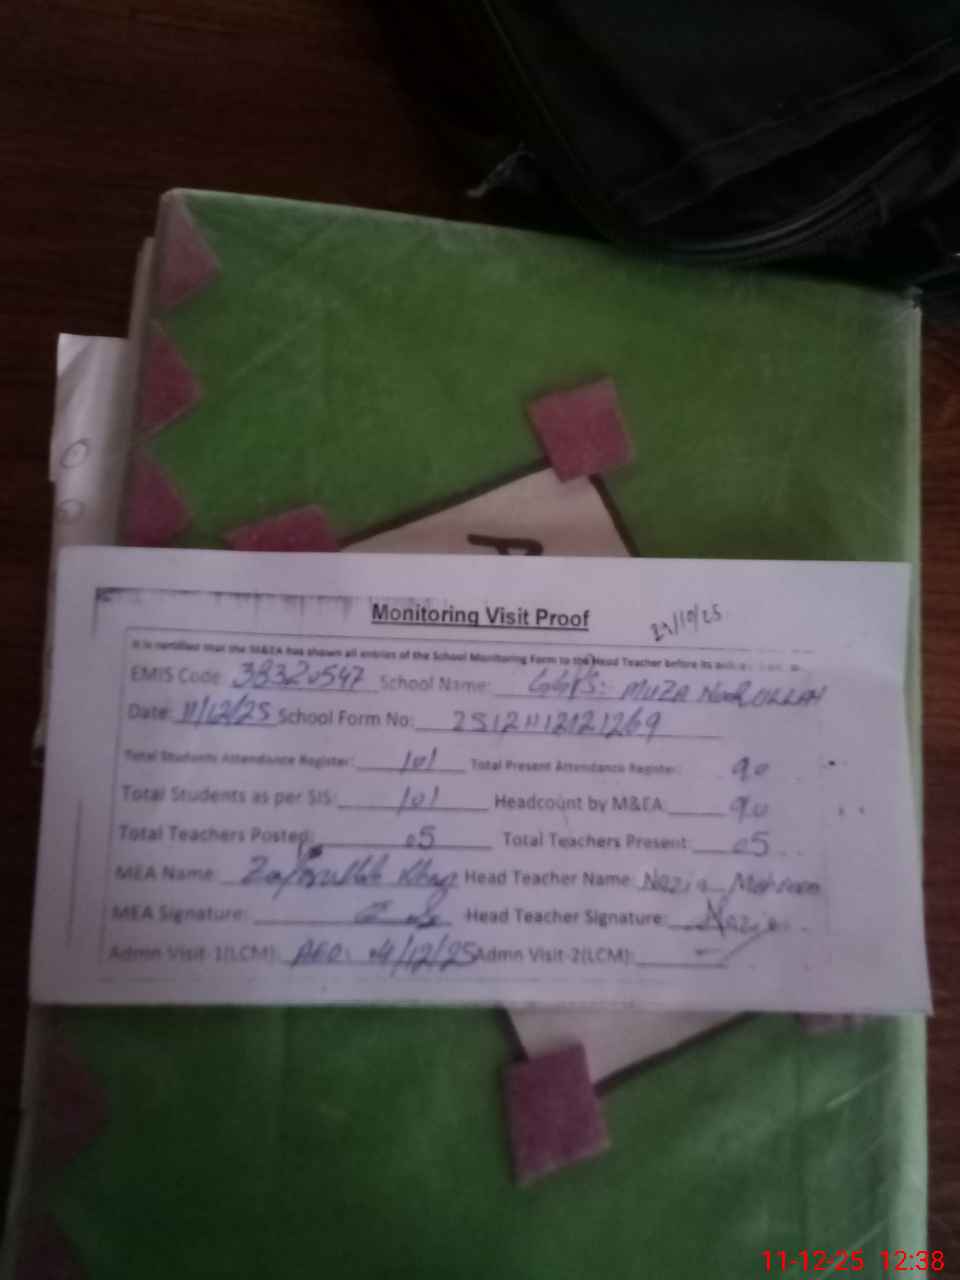 Monitoring Visit Proof
It is certified that the M&EA has shown all entries of the School Monitoring Form to the Head Teacher before its
EMIS Code: 38320547 School Name: GGPS: MUZA NOORULLAH
Date: 11/12/25 School Form No:
Total Students Attendance Register: 101 Total Present Attendance Register: 90
Total Students as per SIS: 101 Headcount by M&EA: 90
Total Teachers Posted: 05 Total Teachers Present: 05
MEA Name: Zafrullah Khan Head Teacher Name: Nazia
MEA Signature: Head Teacher Signature: Nazia
Admn Visit-1(LCM): AEO: 04/12/25 Admn Visit-2(LCM):
11-12-25 12:38